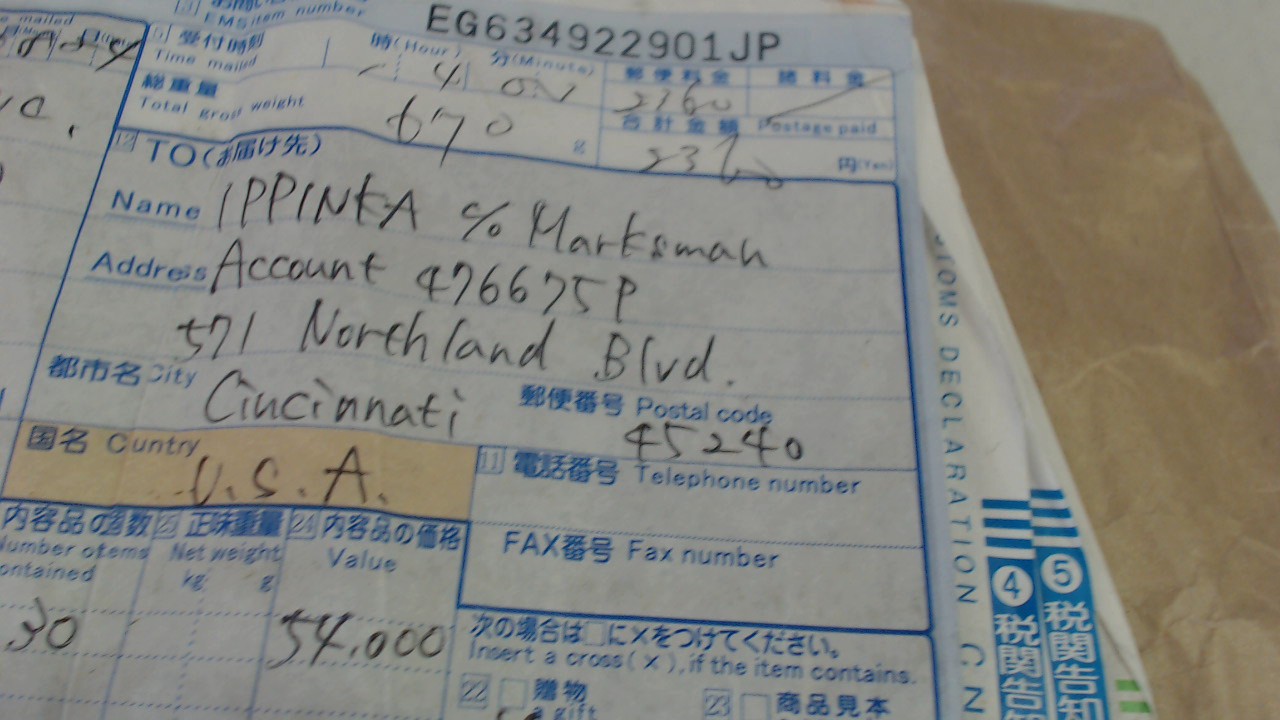 mailed
EMS item number
EG634922901JP
受付時刻
Time mailed
時(Hour)
分(Minute)
郵便料金
諸料金
総重量
Total gross weight
670
g
合計金額 Postage paid
円(Yen)
12 TO(お届け先)
Name IPPINKA c/o Marksman
Address Account 476675P
571 Northland Blvd.
都市名 City Cincinnati
郵便番号 Postal code
45240
国名 Country
U.S.A.
11 電話番号 Telephone number
FAX番号 Fax number
内容品の個数
Number of items
contained
正味重量
Net weight
kg g
24 内容品の価格
Value
30
54,000
次の場合は□に×をつけてください。
Insert a cross(×),if the item contains.
22 贈物
a gift
23 商品見本
CUSTOMS DECLARATION CN
④税関告知
⑤税関告知